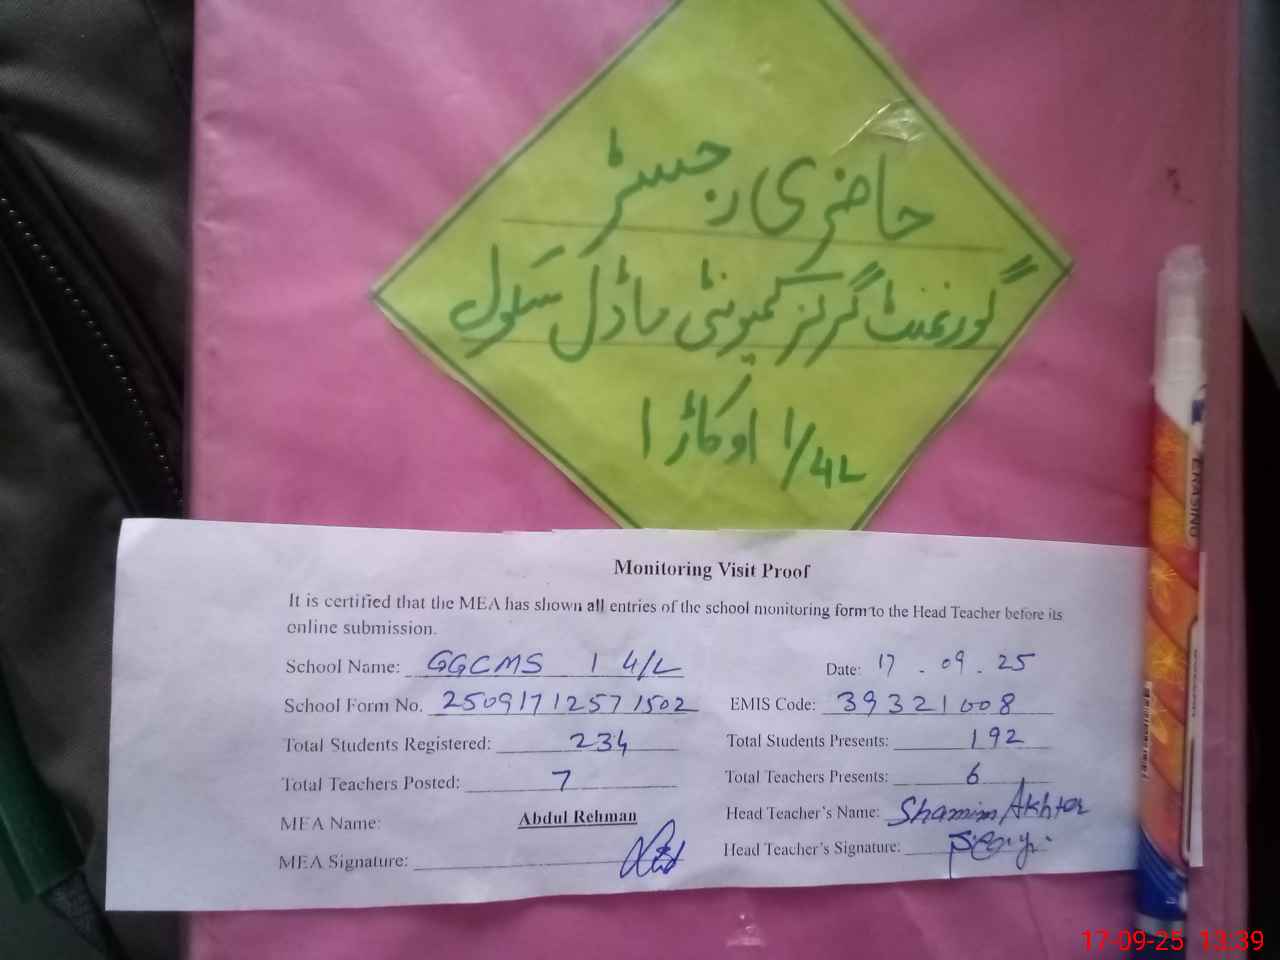 حاضری رجسٹر
گورنمنٹ گرلز کمیونٹی ماڈل سکول
1/4L اوکاڑا
Monitoring Visit Proof
It is certified that the MEA has shown all entries of the school monitoring form to the Head Teacher before its
online submission.
School Name: GGCMS 1 4/L Date: 17 - 09 - 25
School Form No. 25091712571502 EMIS Code: 39321008
Total Students Registered: 234 Total Students Presents: 192
Total Teachers Posted: 7 Total Teachers Presents: 6
MEA Name: Abdul Rehman Head Teacher's Name: Shamim Akhter
MEA Signature: Head Teacher's Signature:
17-09-25 13:39